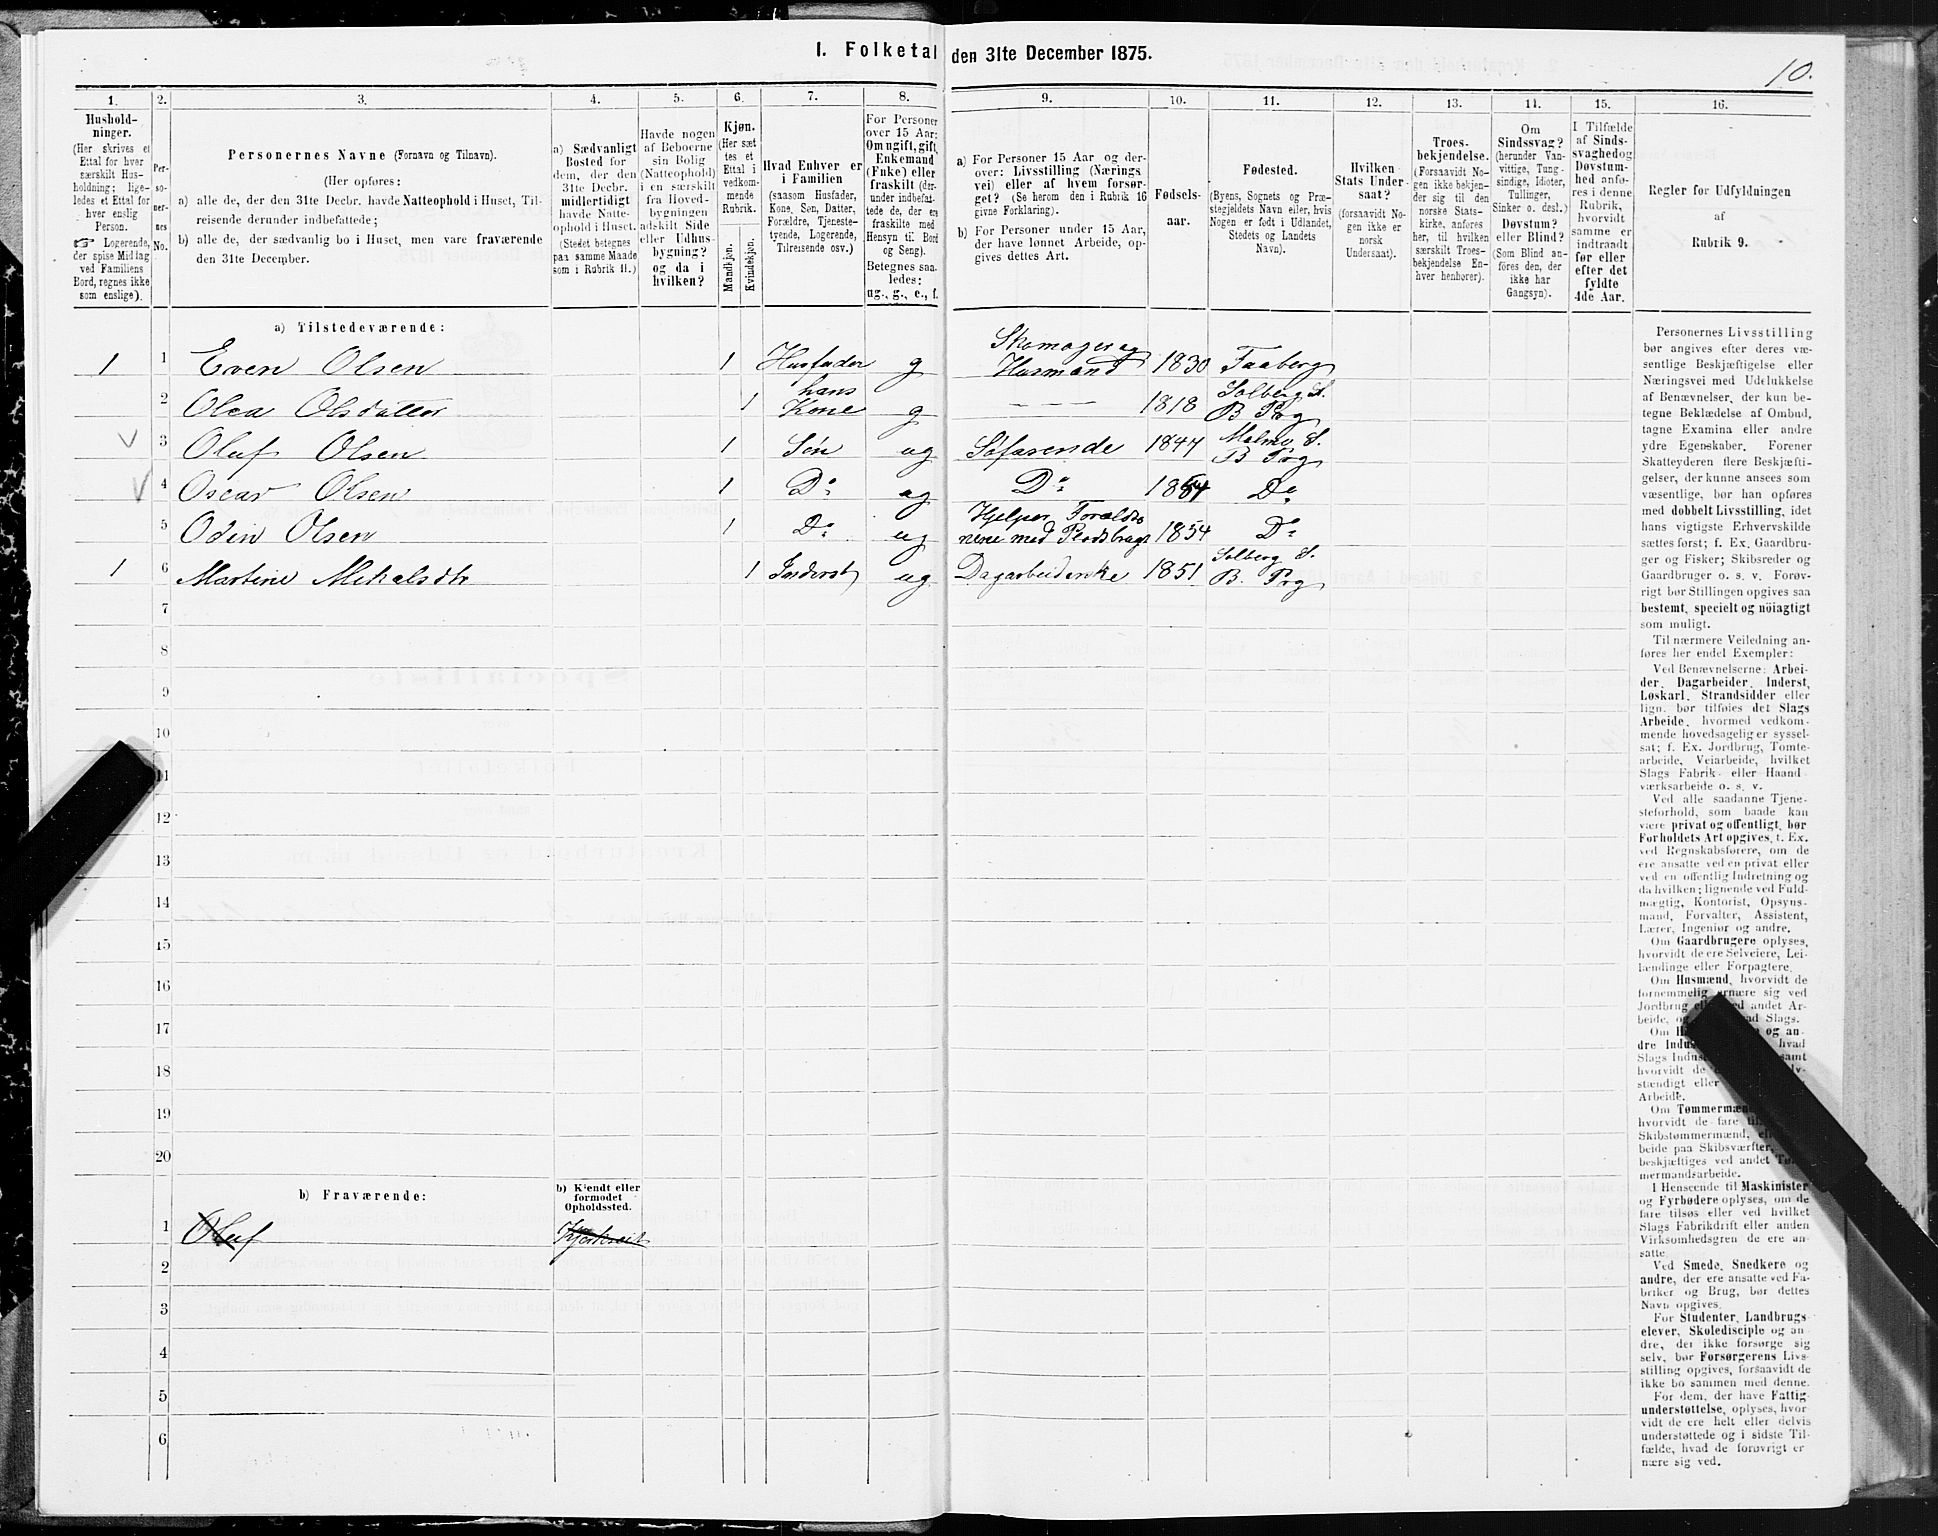 I. Folketal den 31te December 1875.
10.
1. 2. 3. 4. 5. 6. 7. 8. 9. 10. 11. 12. 13. 14. 15. 16.
Hushold-
ninger.
(Her skrives et
Ettal for hver
særskilt Hus-
holdning; lige-
ledes et Ettal for
hver enslig
Person.
☞ Logerende,
der spise Middag
ved Familiens
Bord, regnes ikke
som enslige).
Per-
so-
ner-
nes
No.
Personernes Navne (Fornavn og Tilnavn).
(Her opføres:
a) alle de, der den 31te Decbr. havde Natteophold i Huset, Til-
reisende derunder indbefattede;
b) alle de, der sædvanlig bo i Huset, men vare fraværende
den 31te December.
a) Sædvanligt
Bosted for
dem, der den
31te Decbr.
midlertidigt
havde Natte-
ophold i Huset.
(Stedet betegnes
paa samme Maade
som i Rubrik 11.)
Havde nogen
af Beboerne
sin Bolig
(Natteophold)
i en særskilt
fra Hoved-
bygningen
adskilt Side
eller Udhus-
bygning?
og da i
hvilken?
Kjøn.
(Her sæt
tes et
Ettal i
vedkom-
mende
Rubrik.
Mandkjøn.
Kvindekjøn.
Hvad Enhver er
i Familien
(saasom Husfader,
Kone, Søn, Datter,
Forældre, Tjeneste-
tyende, Logerende,
Tilreisende osv.)
For Personer
over 15 Aar:
Om ugift, gift,
Enkemand
(Enke) eller
fraskilt (der-
under indbefat-
tede de, der ere
fraskilte med
Hensyn til Bord
og Seng).
Betegnes saa-
ledes:
ug., g., e., f.
a) For Personer 15 Aar og der-
over: Livsstilling (Nærings
vei) eller af hvem forsør-
get? (Se herom den i Rubrik 16
givne Forklaring).
b) For Personer under 15 Aar,
der have lønnet Arbeide, op-
gives dettes Art.
Fødsels-
aar.
Fødested.
(Byens, Sognets og Præ-
stegjeldets Navn eller, hvis
Nogen er født i Udlandet,
Stedets og Landets
Navn).
Hvilken
Stats Under-
saat?
(forsaavidt No-
gen ikke er
norsk
Undersaat).
Troes-
bekjendelse.
(Forsaavidt No-
gen ikke bekjen-
der sig til den
norske Stats-
kirke, anføres
her, til hvilken
særskilt Troes-
bekjendelse En-
hver henhører).
Om
Sindssvag?
(herunder Van-
vittige, Tung-
sindige, Idioter,
Tullinger,
Sinker o. desl.)
Døvstum?
eller Blind?
(Som Blind an-
føres den, der
ikke har
Gangsyn).
I Tilfælde
af Sinds-
svaghed og
Døvstum-
hed anfø-
res i denne
Rubrik,
hvorvidt
samme er
indtraadt
før eller
efter det
fyldte
4de Aar.
Regler for Udfyldningen
af
Rubrik 9.
a) Tilstedeværende:
1 1 Even Olsen 1 Husfader g Skomager og Husmand 1830 Faaberg
2 Olea Olsdatter 1 hans Kone g — — — 1818 Solberg S. B Præg
3 Oluf Olsen 1 Søn ug Søfarende 1844 Malmø S. B Præg
4 Oscar Olsen 1 Do ug Do 1864 Do
5 Odin Olsen 1 Do ug Hjelper Foreldre nene med 1854 Do
1 6 Martine Mikalsdtr 1 Inderst ug Dagarbeiderske 1851 Solberg S. B. Præg
7
8
9
10
11
12
13
14
15
16
17
18
19
20
b) Fraværende:
b) Kjendt eller
formodet
Opholdssted.
1 Oluf
2
3
4
5
6
Personernes Livsstilling
bør angives efter deres væ-
sentlige Beskjæftigelse eller
Næringsvei med Udelukkelse
af Benævnelser, der kun be-
tegne Beklædelse af Ombud,
tagne Examina eller andre
ydre Egenskaber. Forener
Skatteyderen flere Beskjæfti-
gelser, der kunne ansees som
væsentlige, bør han opføres
med dobbelt Livsstilling, idet
hans vigtigste Erhvervskilde
sættes først; f. Ex. Gaardbru-
ger og Fisker; Skibsreder og
Gaardbruger o. s. v. Forøv-
rigt bør Stillingen opgives saa
bestemt, specielt og nöiagtigt
som muligt.
Til nærmere Veiledning an-
føres her endel Exempler:
Ved Benævnelserne: Arbei-
der, Dagarbeider, Inderst,
Løskarl, Strandsidder eller
lign. bør tilføies det Slags
Arbeide, hvormed vedkom-
mende hovedsagelig er syssel-
sat; f. Ex. Jordbrug, Tomte-
arbeide, Veiarbeide, hvilket
Slags Fabrik- eller Haand-
værksarbeide o. s. v.
Ved alle saadanne Tjene-
steforhold, som baade kan
være privat og offentligt, bør
Forholdets Art opgives, t. Ex.
ved Regnskabsførere, om de
ere ansatte ved en privat eller
ved en offentlig Indretning og
da hvilken; lignende ved Fuld-
mægtig, Kontorist, Opsyns-
mand, Forvalter, Assistent,
Lærer, Ingeniør og andre.
Om Gaardbrugere oplyses,
hvorvidt de ere Selveiere, Lei-
lændinge eller Forpagtere.
Om Husmænd, hvorvidt de
fornemmelig ernære sig ved
Jordbrug eller ved andet Ar-
beide, og Slags.
Om og an-
dre hvad
Slags samt
hvorvidt de
stændigt eller
Arbeide.
Om Tømmermænd
hvorvidt de fare
Skibstømmermænd,
beide paa Skibsværfter,
beskjæftiges ved andet
mermandsarbeide.
I Henseende til Maskinister
og Fyrbødere oplyses, om de
fare tilsøs eller ved hvilket
Slags Fabrikdrift eller anden
Virksomhedsgren de ere an-
satte.
Ved Smede, Snedkere og
andre, der ere ansatte ved Fa-
briker og Brug, bør dettes
Navn opgives.
For Studenter, Landbrugs-
elever, Skoledisciple og an-
dre, der ikke forsørge sig
selv, bør Forsørgerens Livs-
stilling opgives, forsaavidt de
ikke bo sammen med denne.
For dem, der have Fattig-
understøttelse, oplyses, hvor-
vidt de ere helt eller delvis
understøttede og i sidste Til-
fælde, hvad de forøvrigt er
nære sig ved.